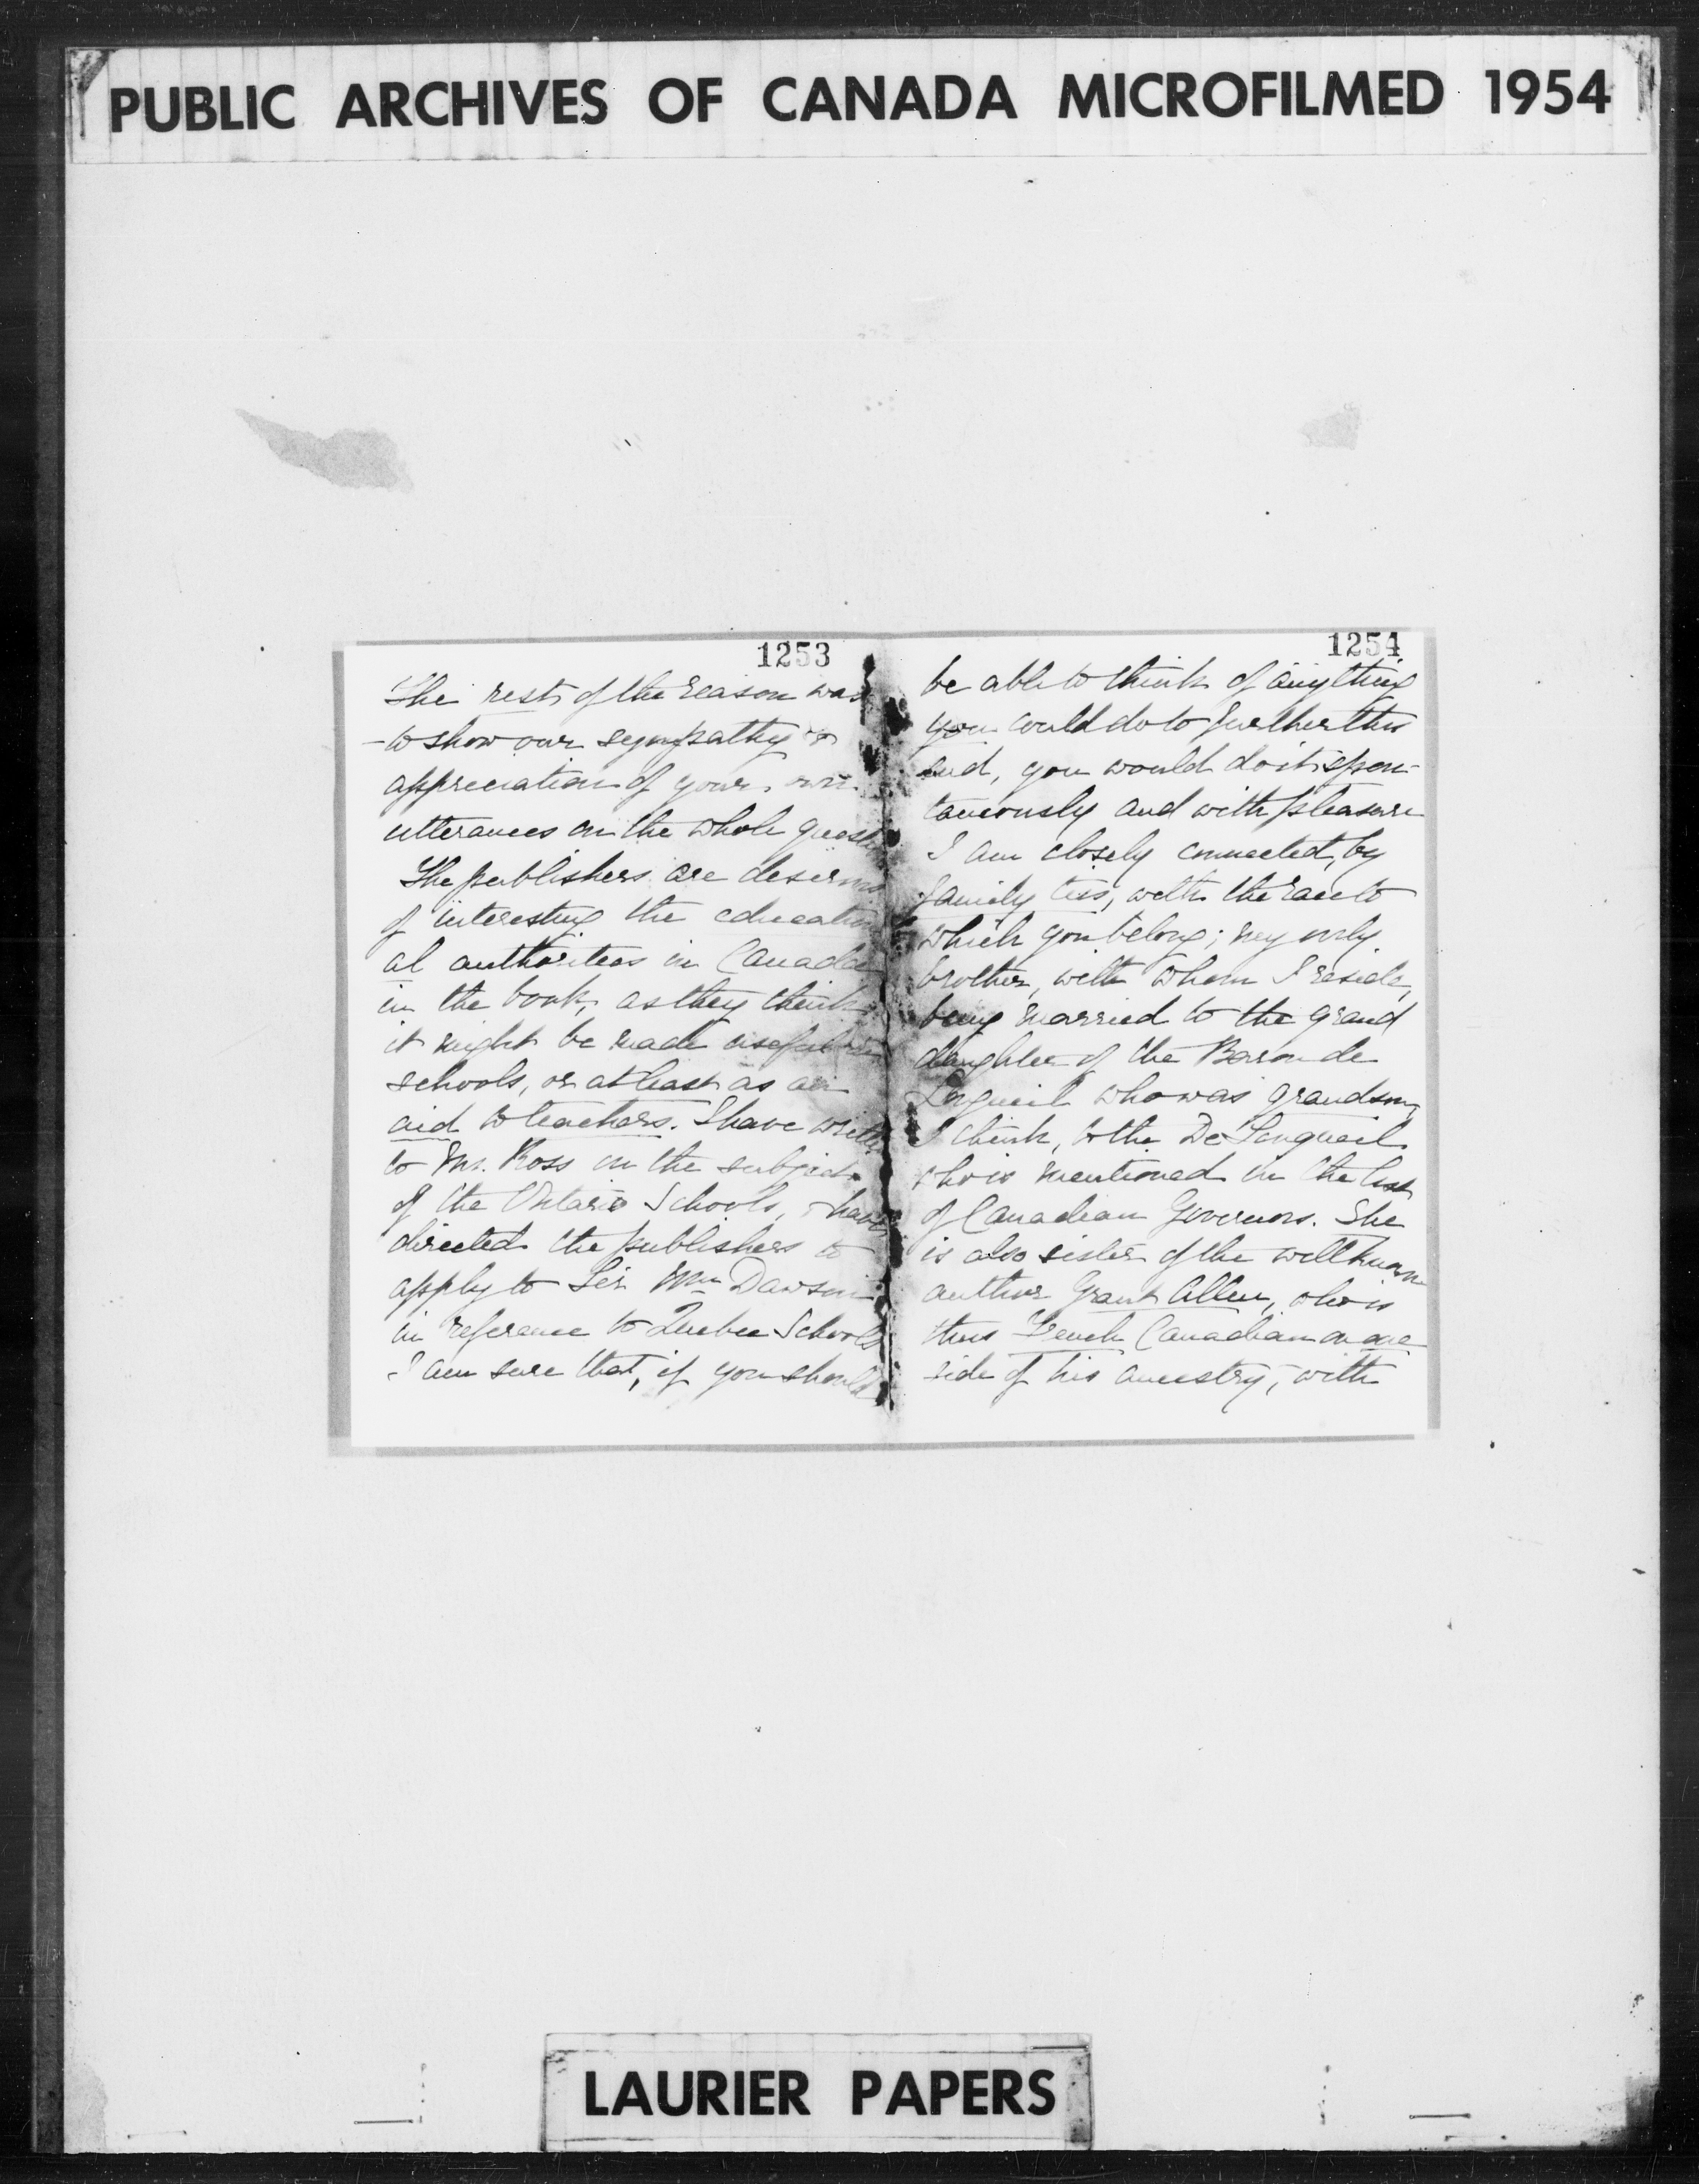 PUBLIC ARCHIVES OF CANADA MICROFILMED 1954
1253
The rest of the reason was
- to show our sympathy &
appreciation of your own
utterances on the whole quest
The publishers are desirous
of interesting the education
al authorities in Canada
in the book, as they think
it might be made useful in
schools, or at least as an
aid to teachers. I have written
to Mr. Ross on the subject
of the Ontario Schools, & have
directed the publishers to
apply to Sir Wm Dawson
in reference to Quebec Schools
I am sure that, if you should
1254
be able to think of anything
you could do to further this
end, you would do it spon-
taneously and with pleasure
I am closely connected, by
family ties, with the race to
which you belong; my only
brother, with whom I reside,
being married to the grand
daughter of the Baron de
Longueil who was grandson,
I think, to the De Longueil
who is mentioned in the list
of Canadian Governors. She
is also sister of the well known
author Grant Allen, who is
thus French Canadian on one
side of his ancestry, with
LAURIER PAPERS